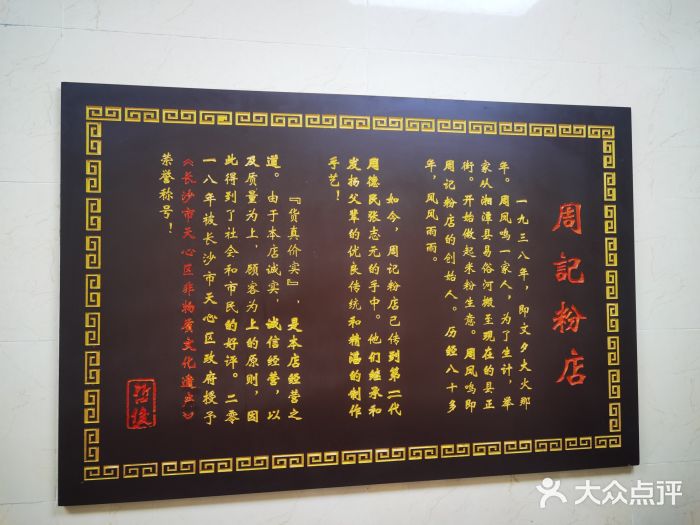 周記粉店
一九三八年，即文夕大火那
年。周凤鸣一家人，为了生计，举
家从湘潭县易俗河搬至现在的县正
街。开始做起米粉生意。周凤鸣即
周记粉店的创始人。历经八十多
年，风风雨雨。
如今，周记粉店已传到第二代
周德民张志元的手中。他们继承和
发扬父辈的优良传统和精湛的制作
手艺！
『货真价实』，是本店经营之
道。由于本店诚实，诚信经营，以
及质量为上，顾客为上的原则，因
此得到了社会和市民的好评。二零
一八年被长沙市天心区政府授予
《长沙市天心区非物质文化遗产》
荣誉称号！
大众点评